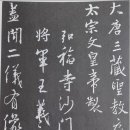 大唐三藏聖教序
太宗文皇帝製
弘福寺沙門
將軍王羲
蓋聞二儀有像